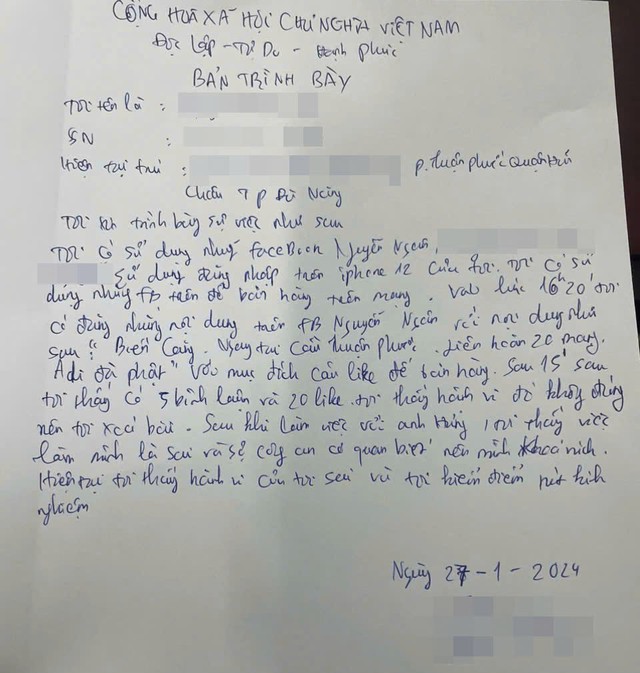 CỘNG HOÀ XÃ HỘI CHỦ NGHĨA VIỆT NAM
Độc Lập - Tự Do - Hạnh phúc
BẢN TRÌNH BÀY
Tôi tên là :
SN :
Hiện tại trú : p. Thuận phước Quận Hải
Châu TP Đà Nẵng
Tôi xin trình bày sự việc như sau
Tôi có sử dụng những facebook Nguyễn Ngân,
sử dụng đăng nhập trên iphone 12 của tôi. Tôi có sử
dụng những FB trên để bán hàng trên mạng. Vào lúc 16h20' tôi
có đăng những nội dung trên FB Nguyễn Ngân với nội dung như
sau: " Biến Căng. Ngay tại Cầu thuận phước. liên hoàn 20 mạng.
A di đà phật" Với mục đích câu like để bán hàng. Sau 15' sau
tôi thấy có 5 bình luận và 20 like. tôi thấy hành vi đó không đúng
nên tôi xoá bài. Sau khi làm việc với anh Hưng tôi thấy việc
làm mình là sai và sợ công an cơ quan biết nên mình khoá nick.
Hiện tại tôi thấy hành vi của tôi sai và tôi kiểm điểm rút kinh
nghiệm
Ngày 27 - 1 - 2024